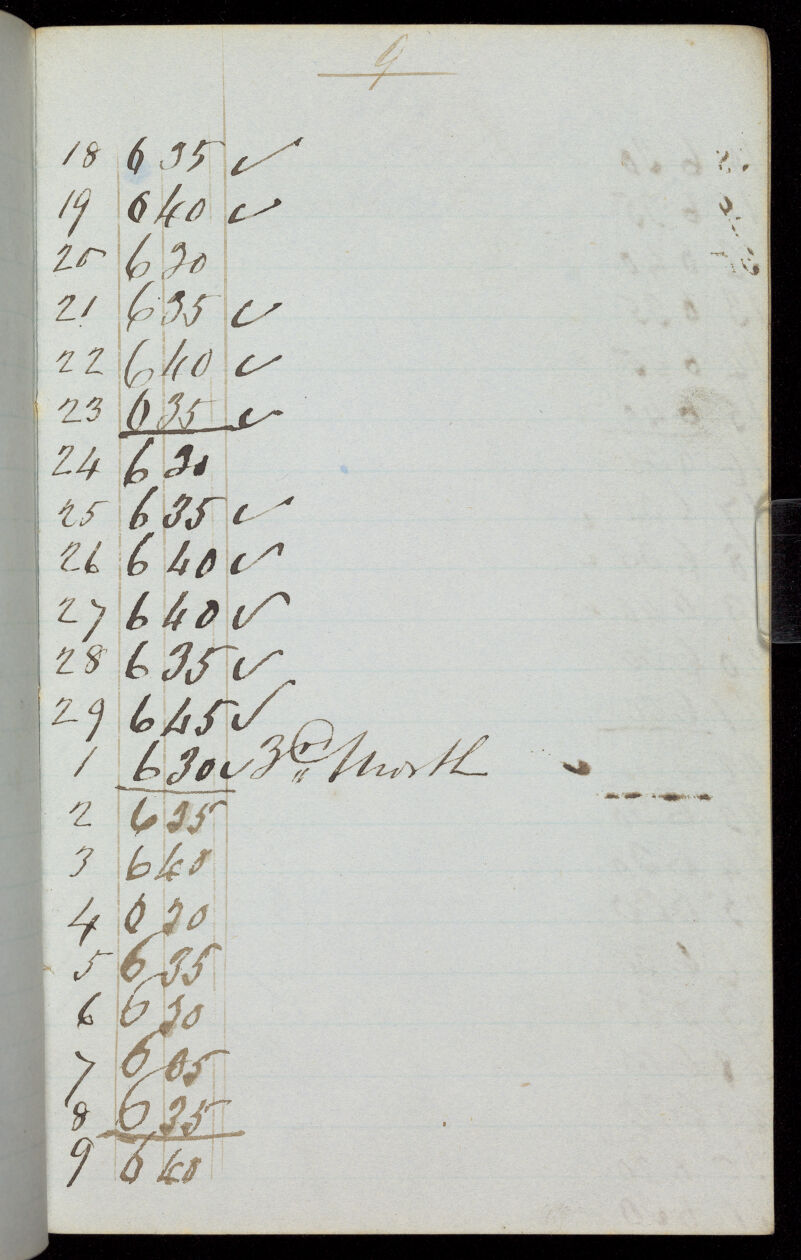 9
18 6 35 ✓
19 6 40 ✓
20 6 30
21 6 35 ✓
22 6 40 ✓
23 6 35 ✓
24 6 30
25 6 35 ✓
26 6 40 ✓
27 6 40 ✓
28 6 35 ✓
29 6 45 ✓
1 6 30 ✓ 3rd Month
2 6 35
3 6 40
4 6 30
5 6 35
6 6 30
7 6 05
8 6 35
9 6 40